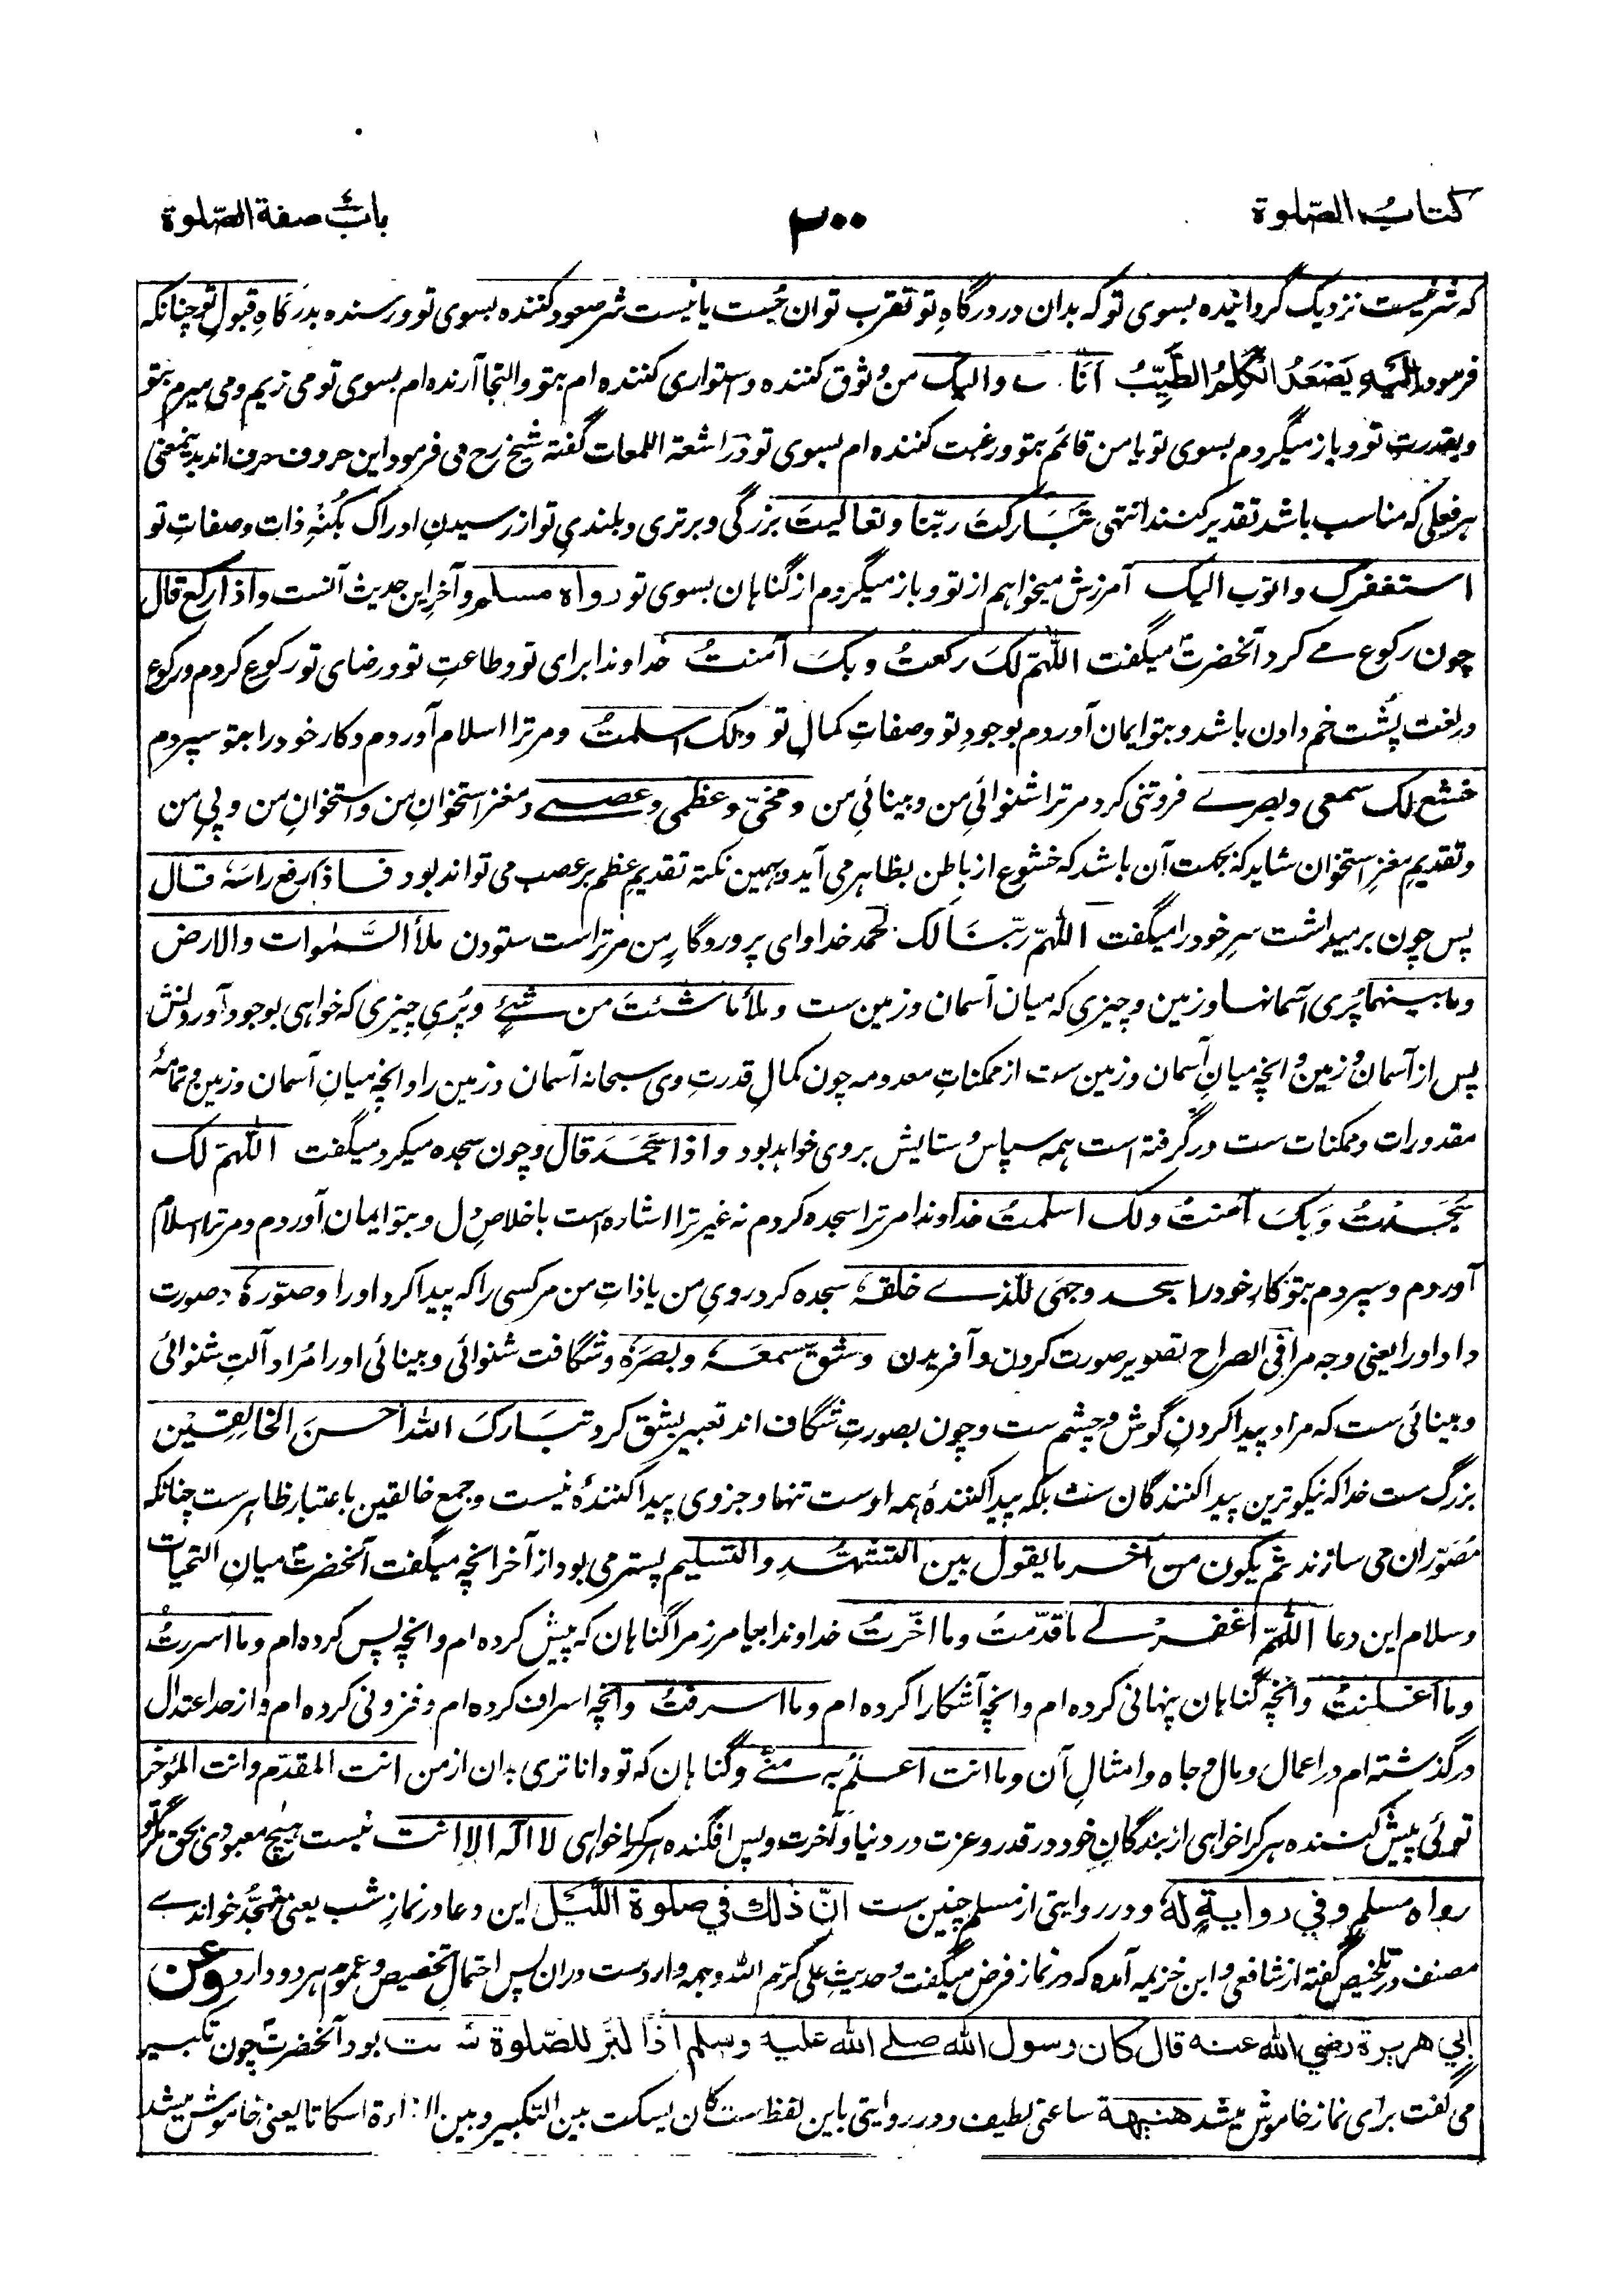 کتاب الصّلوة
۳۰۰
باب صفة الصّلوة
که شر نیست نزدیک گردانیده بسوی تو که بدان در درگاهِ تو تقرب توان جُست یا نیست شر صعود کننده بسوی تو و رسنده بدرگاهِ قبولِ تو چنانکه
فرمود الیه یَصْعَدُ الکَلِمُ الطَّیِّبُ اَنَا و الیک من وثوق کننده و استواری کننده ام بتو و التجا آرنده ام بسوی تو می زیم و می میرم بتو
و بقدرتِ تو و باز میگردم بسوی تو یا من قائم بتو و رغبت کننده ام بسوی تو در اشعة اللمعات گفته شیخ رح می فرمود این حروف حرف اند بدینمعنی
هر فعلی که مناسب باشد تقدیر کنند انتهی تَبَارکتَ ربّنا و تعالیتَ بزرگی و برتری و بلندیِ تو از رسیدنِ ادراک بکُنْهِ ذات و صفاتِ تو
استغفرک و اتوب الیک آمرزش میخواهم از تو و باز میگردم از گناهان بسوی تو رواه مسلم و آخرِ این حدیث آنست و اذا رکع قال
چون رکوع مے کرد آنحضرتؐ میگفت اللّٰهمّ لکَ رکعتُ و بکَ آمنتُ خداوندا برای تو و طاعتِ تو و رضای تو رکوع کردم و رکوع
در لغت پُشت خم دادن باشد و بتو ایمان آوردم بوجودِ تو و صفاتِ کمالِ تو و لک اسلمتُ و مر ترا اسلام آوردم و کار خود را بتو سپردم
خشع لک سمعی و بصرے فروتنی کرد مر ترا شنوائیِ من و بینائیِ من و مخّی و عظمی و عصبے و مغز استخوانِ من و استخوانِ من و پیِ من
و تقدیمِ مغزِ استخوان شاید که بجهت آن باشد که خشوع از باطن بظاهر می آید و بهمین نکته تقدیمِ عظم بر عصب می تواند بود فاذا رفع راسَهٗ قال
پس چون برمیداشت سرِ خود را میگفت اللّٰهمّ ربّنا لک الحمد خداوای پروردگارِ من مر تراست ستودن ملأ السّمٰوات والارض
و ما بینهما پُریِ آسمانها و زمین و چیزی که میان آسمان و زمین ست و ملأ ما شئتَ من شئٍ و پُریِ چیزی که خواهی بوجود آوردنش
پس از آسمان و زمین و انچه میانِ آسمان و زمین ست از ممکناتِ معدومه چون کمالِ قدرتِ وی سبحانه آسمان و زمین را و انچه میانِ آسمان و زمین و تمامهٔ
مقدورات و ممکنات ست در گرفته است همه سپاس و ستایش بروی خواهد بود و اذا سجَدَ قال و چون سجده میکرد میگفت اللّٰهمّ لک
سجَدتُ وَ بکَ آمنتُ و لک اسلمتُ خداوندا مر ترا سجده کردم نه غیر ترا اشاره است باخلاصِ دل و بتو ایمان آوردم و مر ترا اسلام
آوردم و سپردم بتو کارِ خود را سجد وجهی للّذے خلقهٗ سجده کرد رویِ من یا ذاتِ من مر کسی را که پیدا کرد او را و صوّرهٗ و صورت
داد او را یعنی وجه مرا فی الصراح تصویر صورت کردن و آفریدن و شقّ سمعهٗ و بصرَهٗ و شگافت شنوائی و بینائی او را مُراد آلتِ شنوائی
و بینائی ست که مراد پیدا کردنِ گوش و چشم ست و چون بصورتِ شگاف اند تعبیر بشق کرد تبَارکَ اللهُ احسنَ الخالِقِیْن
بزرگ ست خدا که نیکوترین پیدا کنندگان ست بلکه پیدا کنندهٔ همه اوست تنها و جز وی پیدا کنندهٔ نیست و جمع خالقین باعتبار ظاهرست چنانکه
مُصَوّران می سازند ثم یکون من آخر ما یقول بین التشهّدِ و التسلیم پستر می بود از آخر انچه میگفت آنحضرتؐ میانِ التحیات
و سلام این دعا اللّٰهمّ اغفرْلے ما قدّمتُ و ما اخّرتُ خداوندا بیامرز مرا گناهان که پیش کرده ام و انچه پس کرده ام و ما اسررتُ
و ما اَعْلنتُ و انچه گناهان پنهانی کرده ام و انچه آشکارا کرده ام و ما اسرفتُ و انچه اسراف کرده ام و فزونی کرده ام و از حد اعتدال
در گذشته ام در اعمال و مال و جاه و امثالِ آن و ما انت اعلمُ به منّے و گناهان که تو داناتری بدان از من انت المقدّم و انت المؤخر
توئی پیش کننده هر کرا خواهی از بندگانِ خود در قدر و عزت در دنیا و آخرت و پس افگنده هر کرا خواهی لا الٰه الا انت نیست هیچ معبودی بحق مگر تو
رواه مسلم و فی روایةٍ لهٗ و در روایتی از مسلم چنین ست انّ ذٰلك فی صلوة اللّیل این دعا در نمازِ شب یعنی تهجُّد خواندے
مصنف در تلخیص گفته از شافعی و ابن خزیمه آمده که در نماز فرض میگفت و حدیثِ علی کرّم الله وجهه واردست دران پس احتمالِ تخصیص و عموم هر دو دارد وعن
ابی هریرة رضی الله عنه قال کان رسول الله صلے الله علیه وسلم اذا کبّر للصّلوة بود آنحضرتؐ چون تکبیر
می گفت برای نماز خاموش میشد هنیهة ساعتی لطیف و در روایتی باین لفظ ست کان یسکت بین التکبیر و بین القراءة اسکاتا یعنی خاموش میشد